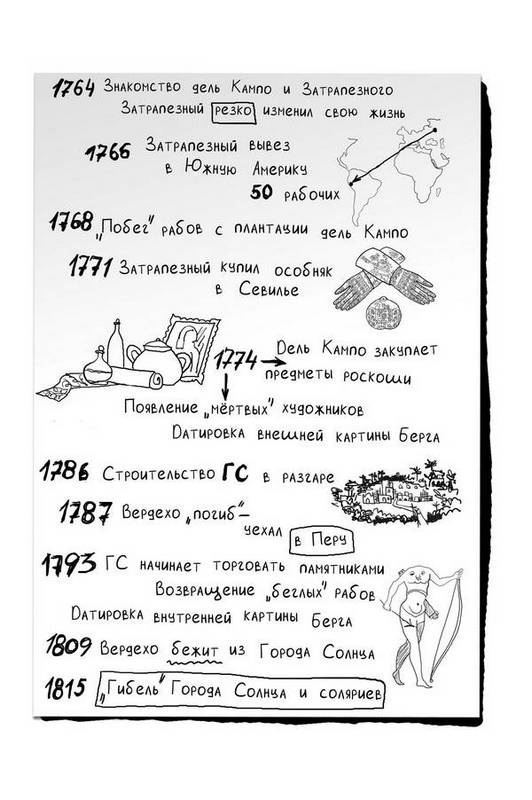 1764 Знакомство дель Кампо и Затрапезного
Затрапезный резко изменил свою жизнь
1766 Затрапезный вывез
в Южную Америку
50 рабочих
1768 „Побег" рабов с плантации дель Кампо
1771 Затрапезный купил особняк
в Севилье
1774 → Дель Кампо закупает
предметы роскоши
Появление „мёртвых" художников
Датировка внешней картины Берга
1786 Строительство ГС в разгаре
1787 Вердехо „погиб" –
уехал в Перу
1793 ГС начинает торговать памятниками
Возвращение „беглых" рабов
Датировка внутренней картины Берга
1809 Вердехо бежит из Города Солнца
1815 „Гибель" Города Солнца и соляриев